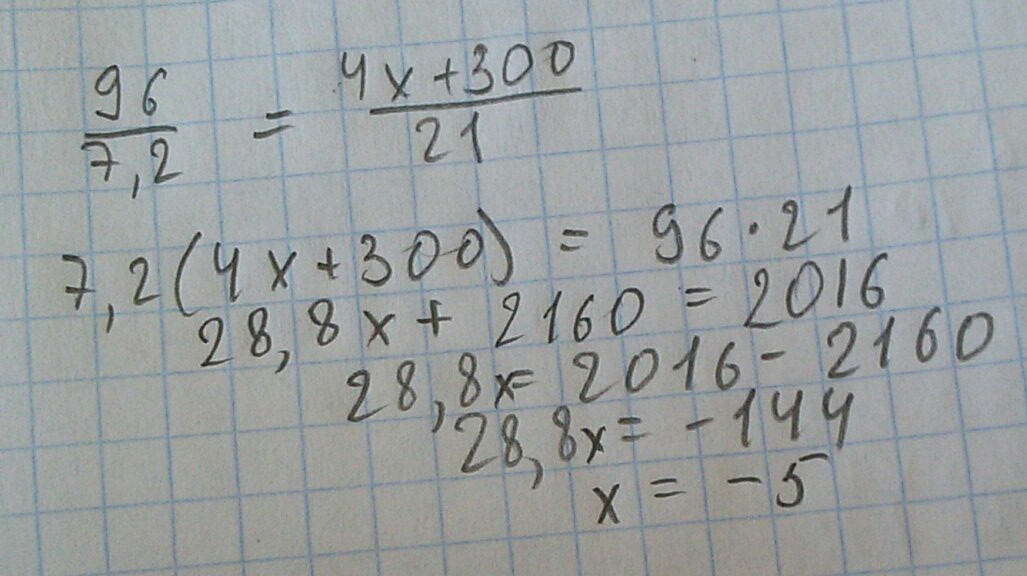 96/7,2 = (4x+300)/21
7,2(4x+300) = 96·21
28,8x + 2160 = 2016
28,8x = 2016 - 2160
28,8x = -144
x = -5